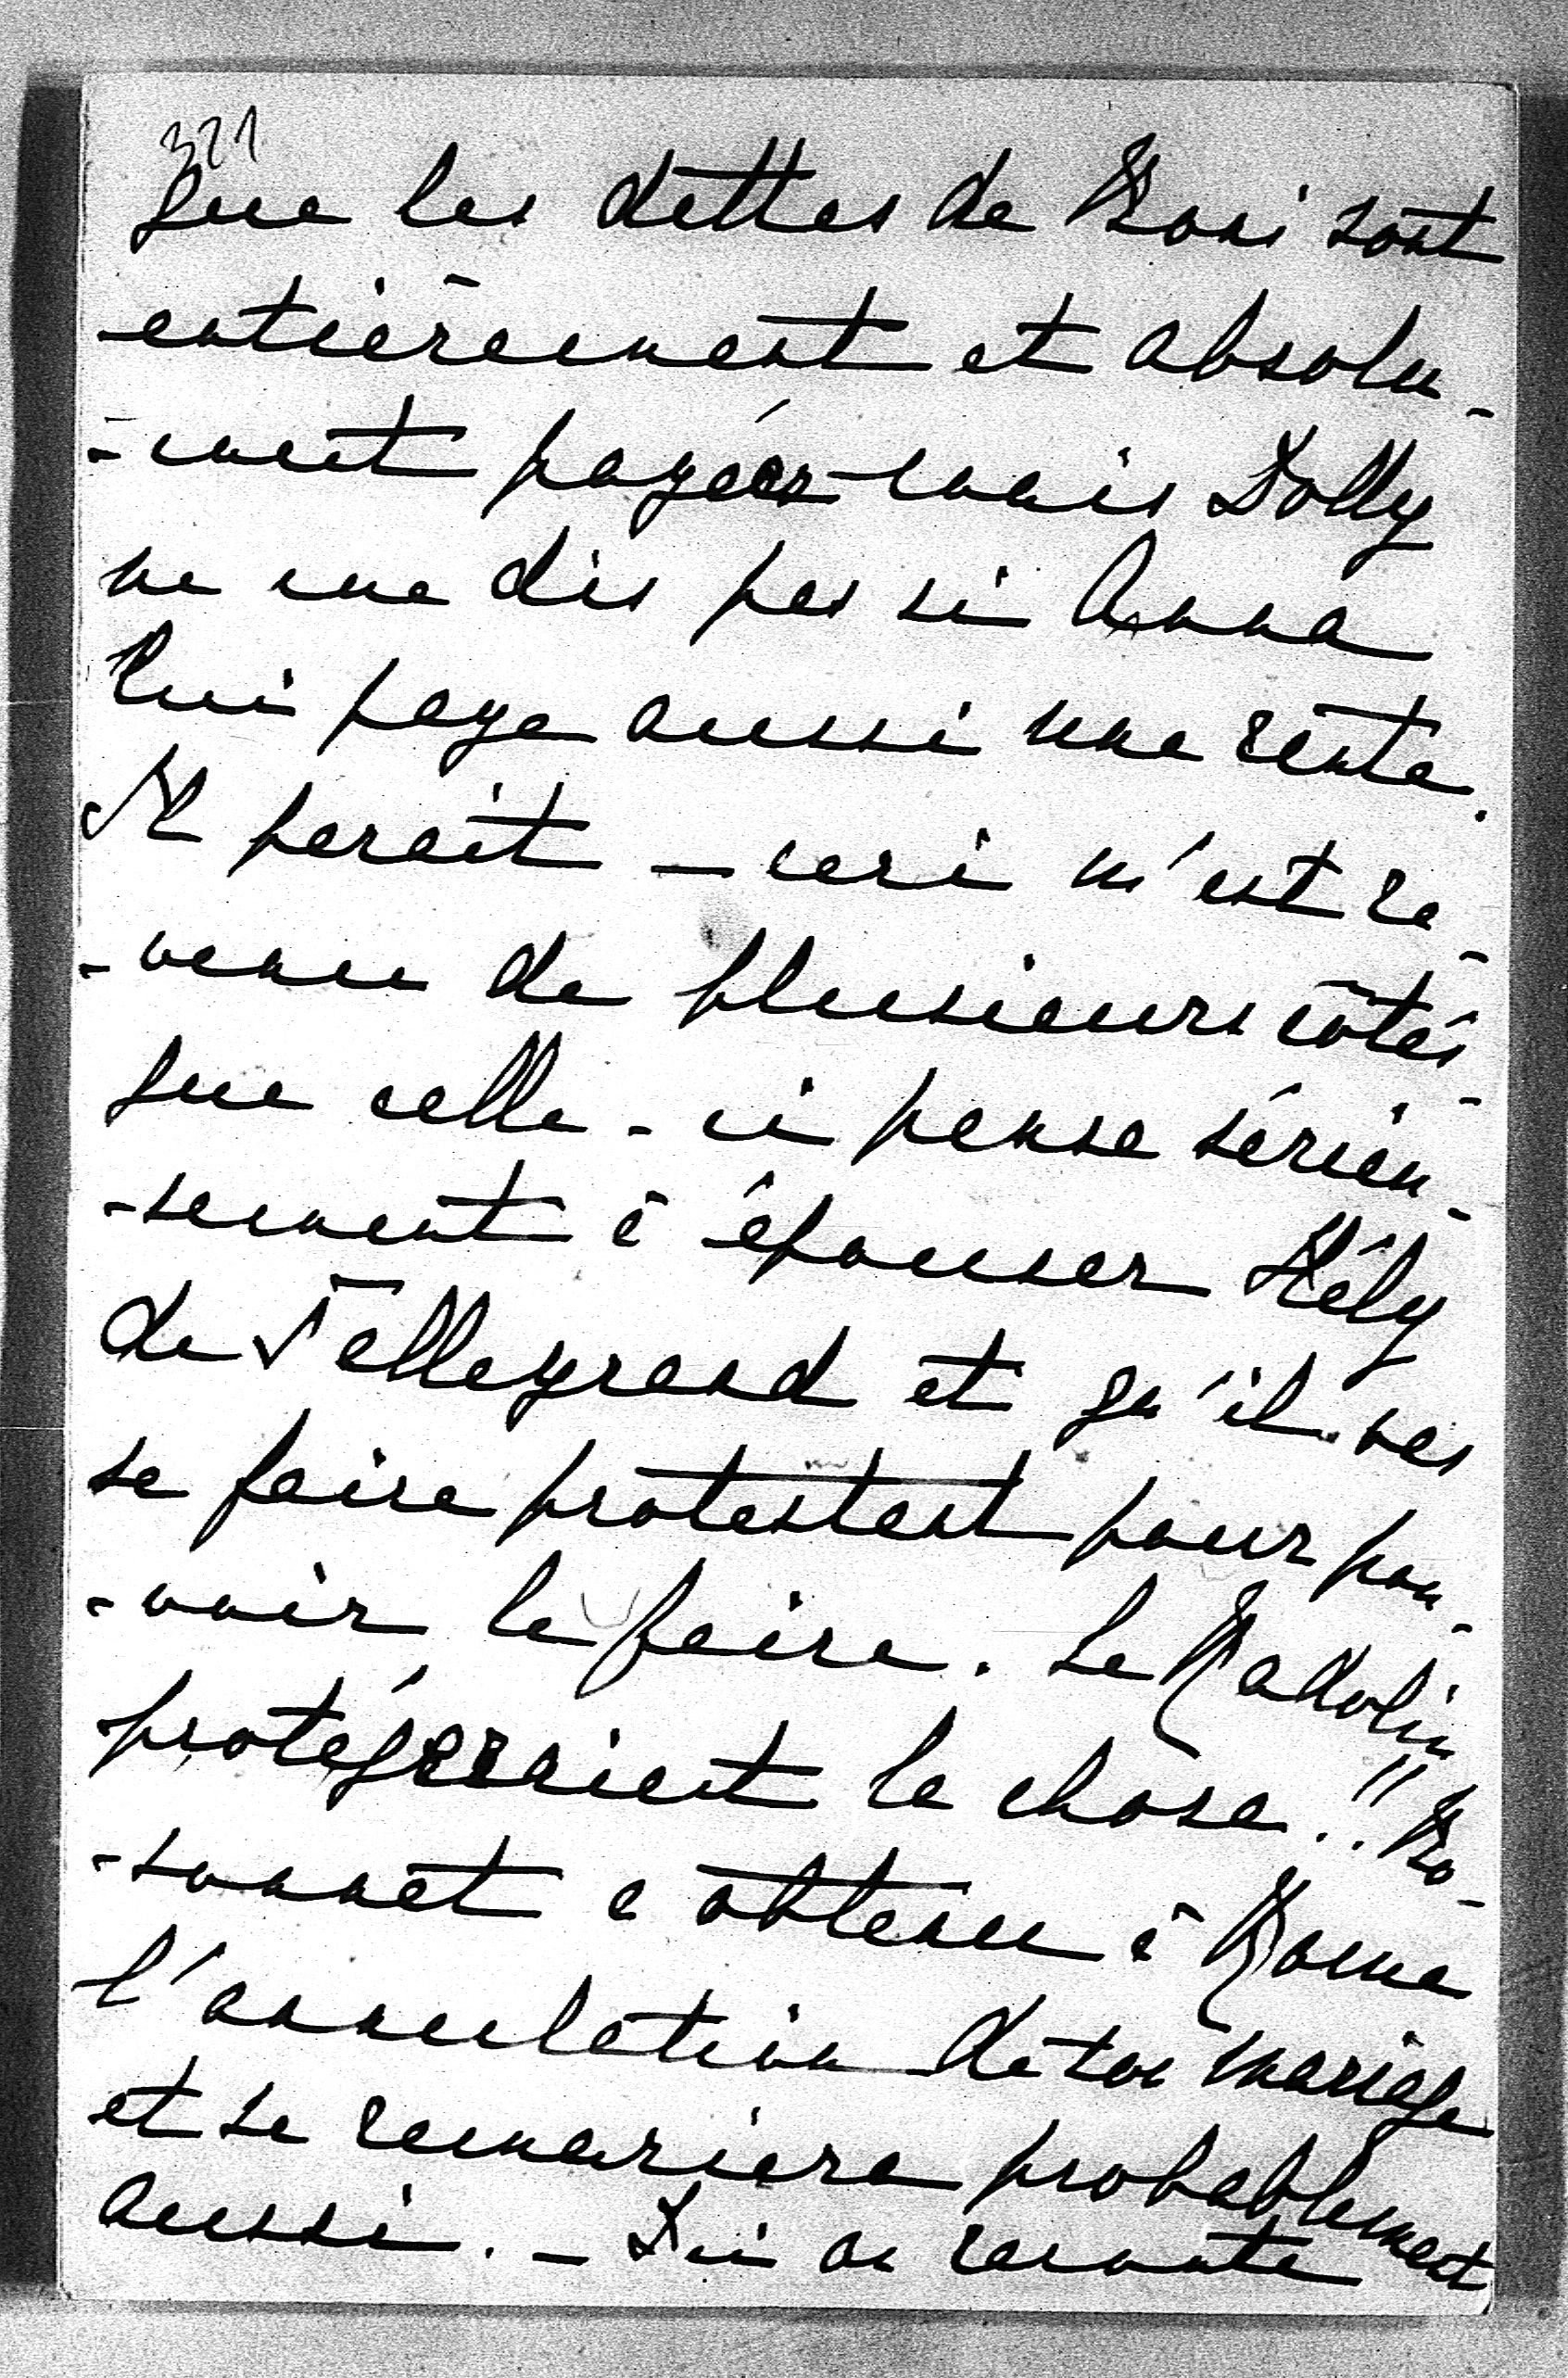 321
que les dettes de Boni sont
entièrement et absolu-
-ment payées mais Dolly
ne me dis pas si Anna
lui paye aussi une rente.
Il parait — ceci m'est re-
-venu de plusieurs côtés
que celle-ci pense sérieu-
-sement à épouser Hély
de Talleyrand et qu'il vas
se faire protestant pour pou-
-voir le faire. Le Radolin
protégeraient la chose!! Bo-
-sonnet a obtenu à Rome
l'annulation de son mariage
et se remariera probablement
aussi. — Ici on raconte